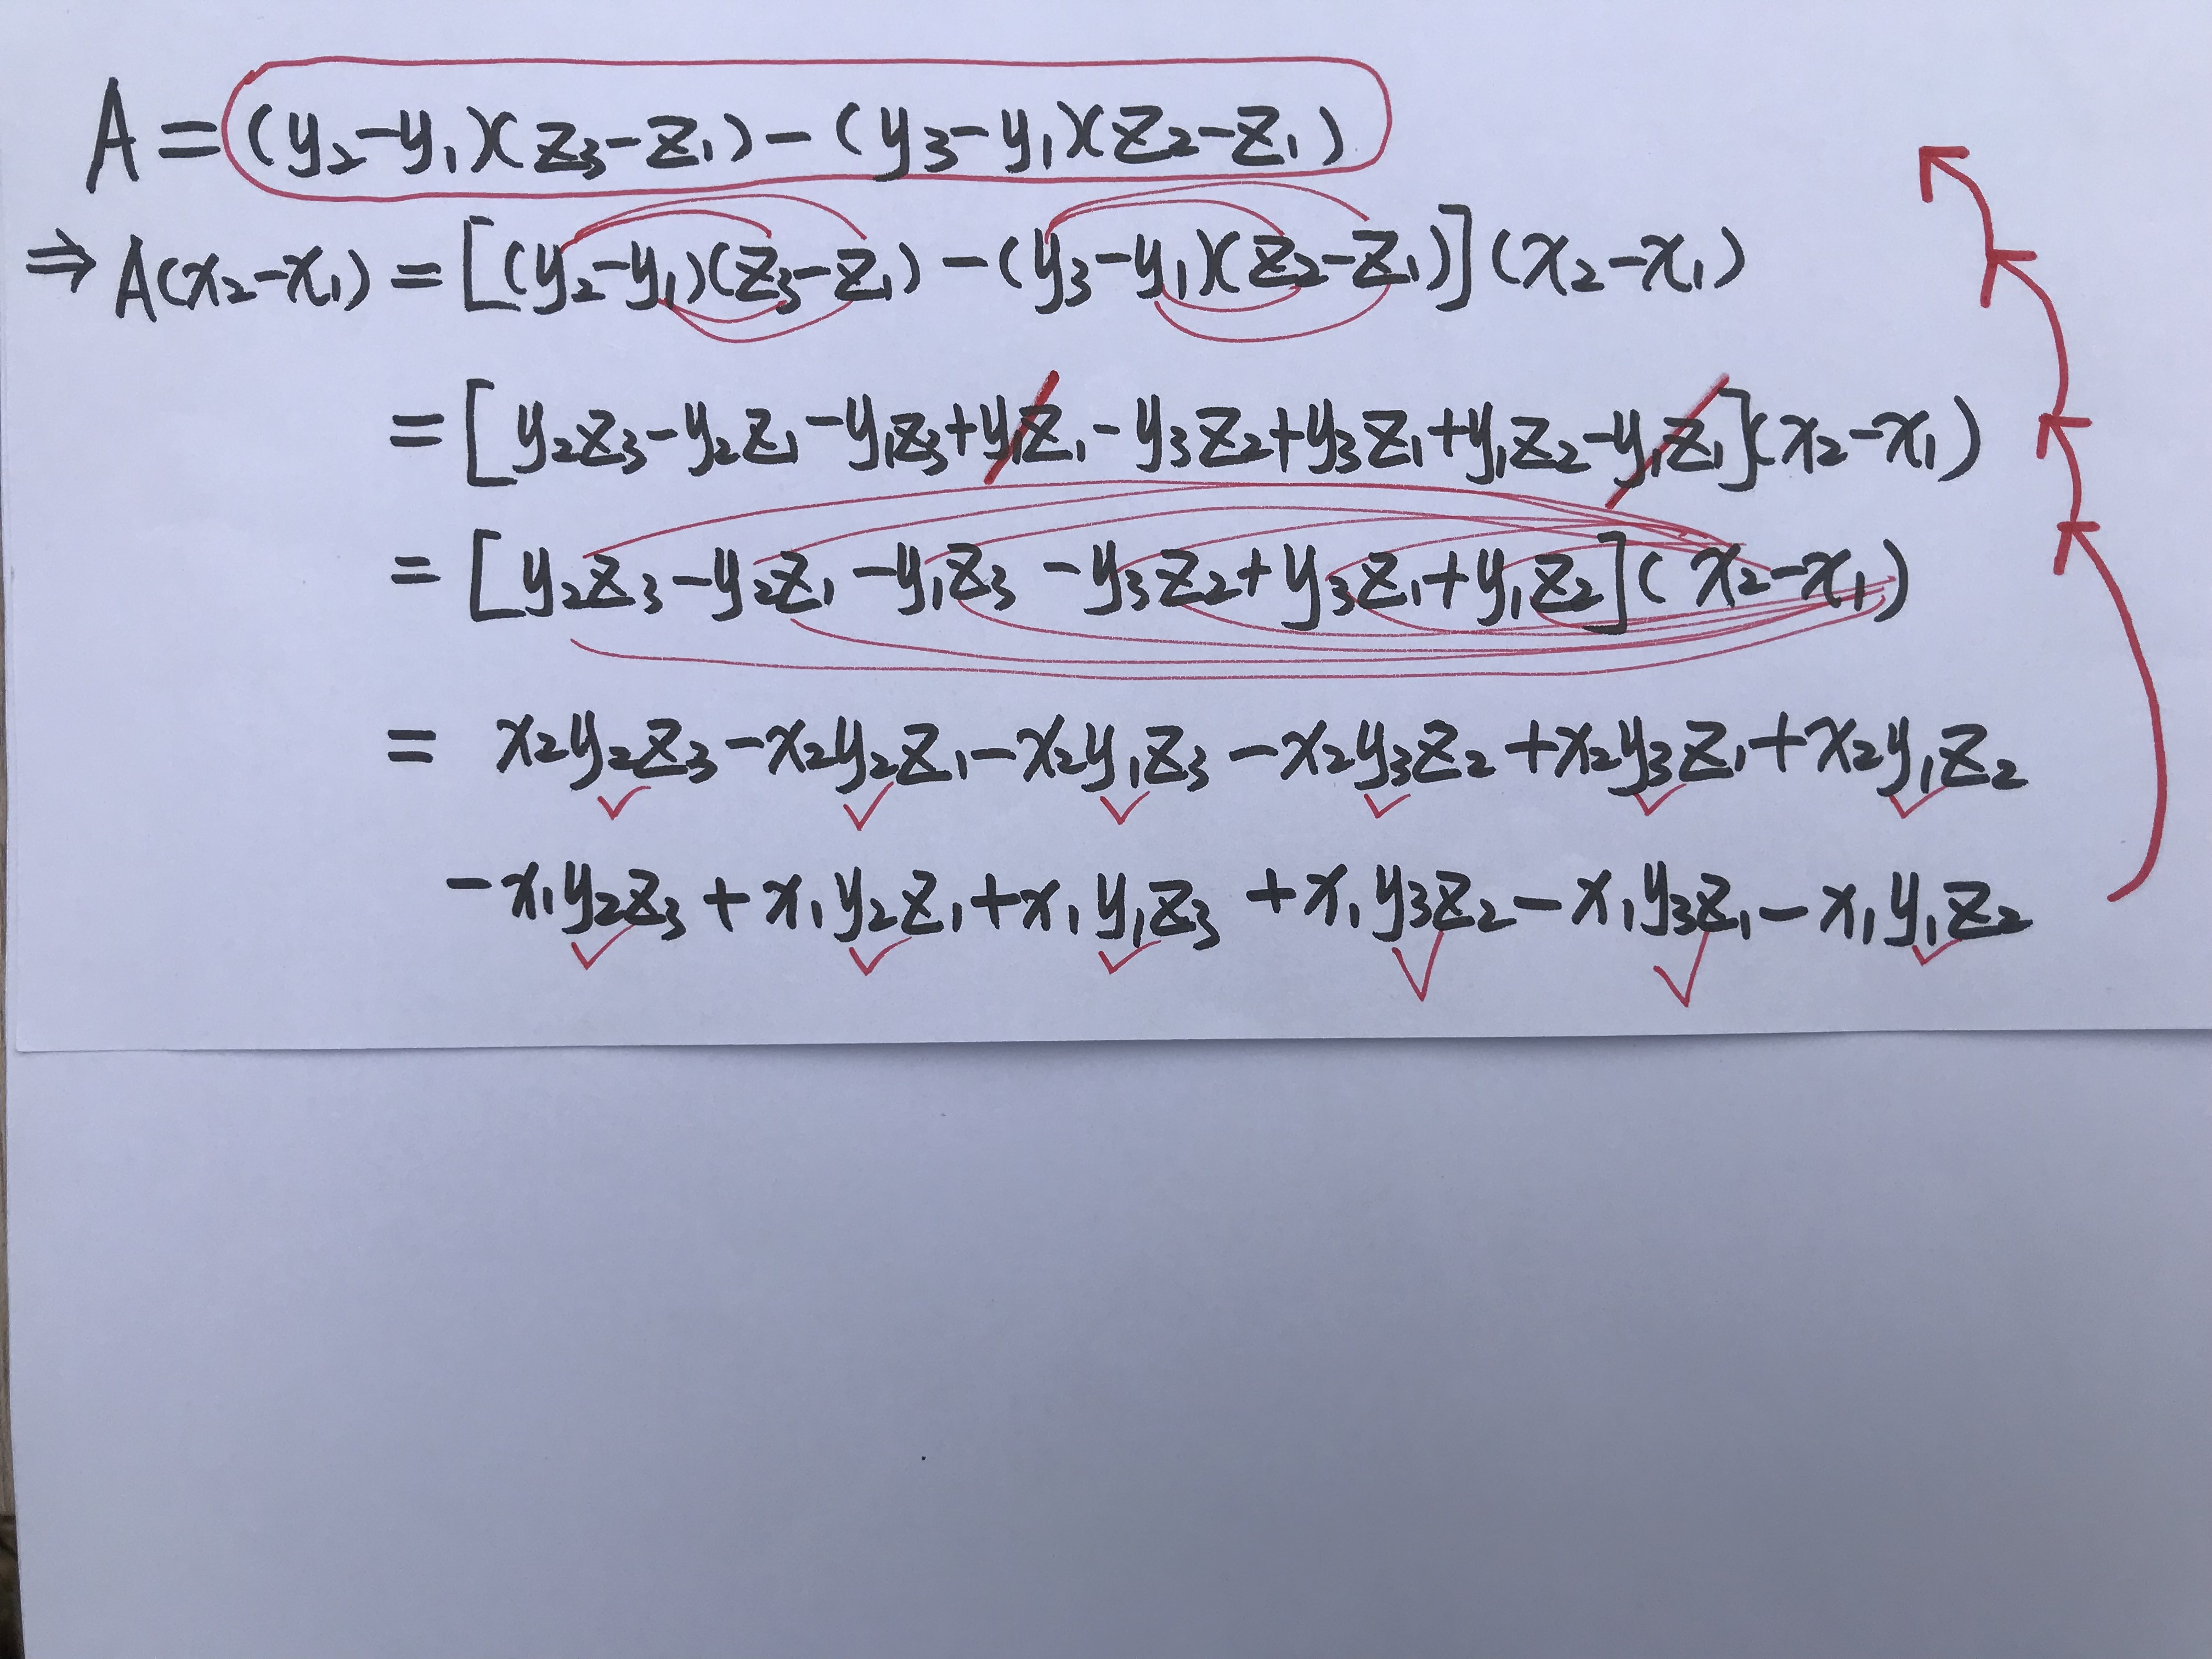 A = (y₂-y₁)(z₃-z₁)-(y₃-y₁)(z₂-z₁)
⇒ A(x₂-x₁) = [(y₂-y₁)(z₃-z₁) -(y₃-y₁)(z₂-z₁)](x₂-x₁)
= [y₂z₃-y₂z₁-y₁z₃+y₁z₁-y₃z₂+y₃z₁+y₁z₂-y₁z₁](x₂-x₁)
= [y₂z₃-y₂z₁-y₁z₃-y₃z₂+y₃z₁+y₁z₂](x₂-x₁)
= x₂y₂z₃-x₂y₂z₁-x₂y₁z₃-x₂y₃z₂+x₂y₃z₁+x₂y₁z₂
-x₁y₂z₃+x₁y₂z₁+x₁y₁z₃+x₁y₃z₂-x₁y₃z₁-x₁y₁z₂